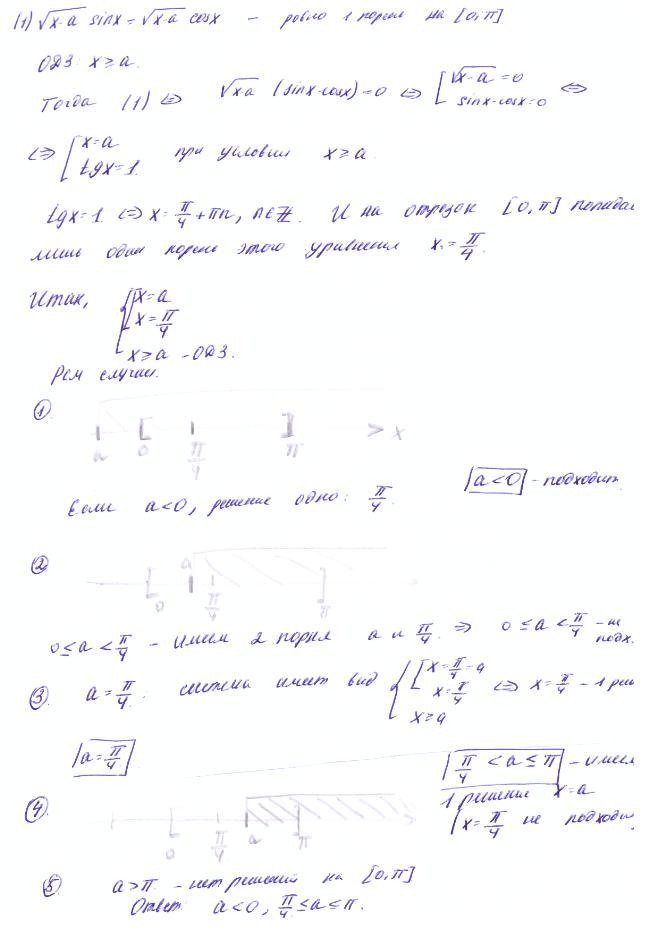 (1) √x-a sinx = √x-a cosx - ровно 1 корень на [0;π]
ОДЗ: x ≥ a.
Тогда (1) ⇔ √x-a (sinx-cosx)=0 ⇔ [ √x-a = 0 sinx-cosx=0 ⇔
⇔ [ x=a tgx=1. при условии x ≥ a
tgx=1. ⇔ x = π/4 + πn, n∈Z. И на отрезок [0,π] попадае
лишь один корень этого уравнения x = π/4.
Итак, { [ x=a x=π/4 x ≥ a - ОДЗ.
Рсм случаи.
①
a 0 π/4 π x
Если a<0, решение одно: π/4. |a<0| - подходит
②
a
0 π/4 π
0 ≤ a < π/4 - имеем 2 корня a и π/4 ⇒ 0 ≤ a < π/4 - не подх.
③. a = π/4. система имеет вид { [ x=π/4=a x=π/4 x ≥ a ⇔ x = π/4 - 1 реш
|a=π/4|
|π/4 < a ≤ π| - имеем
1 решение x=a
(x=π/4 не подходи
④.
0 π/4 a π
⑤. a>π - нет решений на [0,π]
Ответ: a<0, π/4 ≤ a ≤ π.